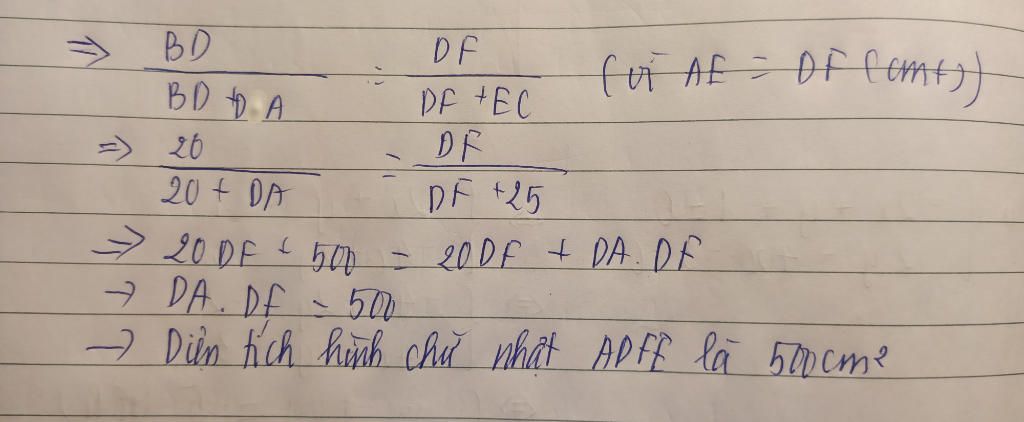 => BD / BD + DA = DF / DF + EC (vì AE = DF (cmt))
=> 20 / 20 + DA = DF / DF + 25
=> 20 DF + 500 = 20 DF + DA. DF
-> DA. DF = 500
-> Diện tích hình chữ nhật ADFE là 500cm²